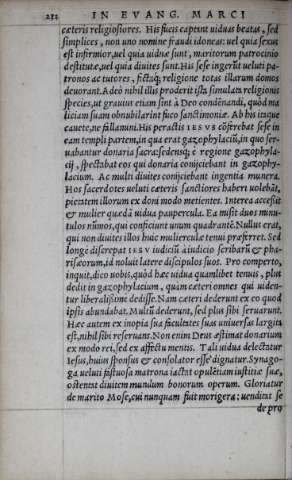 232 IN EVANG. MARCI
cæteris religiosiores. His fucis capiunt uiduas beatas, sed
simplices, non uno nomine fraudi idoneas: uel quia sexus
est infirmior, uel quia uiduæ sunt, maritorum patrocinio
destitutæ, uel quia diuites sunt. His sese ingerūt ueluti pa-
tronos ac tutores, fictaq; religione totas illarum domos
deuorant. Adeò nihil illis proderit ista simulata religionis
species, ut grauius etiam sint à Deo condēnandi, quòd ma
liciam suam obnubilarint fuco sanctimoniæ. Ab his itaque
cauete, ne fallamini. His peractis IESVS cōtrebat sese in
eam templi partem, in qua erat gazophylaciū, in quo ser-
uabantur donaria sacra: sedensq; è regione gazophyla-
cij, spectabat eos qui donaria conijciebant in gazophy-
lacium. Ac multi diuites conijciebant ingentia munera.
Hos sacerdotes ueluti cæteris sanctiores haberi uolebāt,
pietatem illorum ex doni modo metientes. Interea accessit
& mulier quædā uidua paupercula. Ea misit duos minu-
tulos nūmos, qui conficiunt unum quadrantē. Nullus erat,
qui non diuites illos huic mulierculæ tenui præferret. Sed
longè discrepat IESV iudiciū à iudicio scribarū & pha-
risæorum, id noluit latere discipulos suos. Pro comperto,
inquit, dico uobis, quòd hæc uidua quamlibet tenuis, plus
dedit in gazophylacium, quàm cæteri omnes qui uiden-
tur liberalissime dedisse. Nam cæteri dederunt ex eo quod
ipsis abundabat. Multū dederunt, sed plus sibi seruarunt.
Hæc autem ex inopia sua facultates suas uniuersas largita
est, nihil sibi reseruans. Non enim Deus æstimat donarium
ex modo rei, sed ex affectu mentis. Tali uidua delectatur
Iesus, huius sponsus & consolator esse dignatur. Synago-
ga ueluti fastuosa matrona iactat opulētiam iustitiæ suæ,
ostentat diuitem mundum bonorum operum. Gloriatur
de marito Mose, cui nunquam fuit morigera: uenditat se
de pro